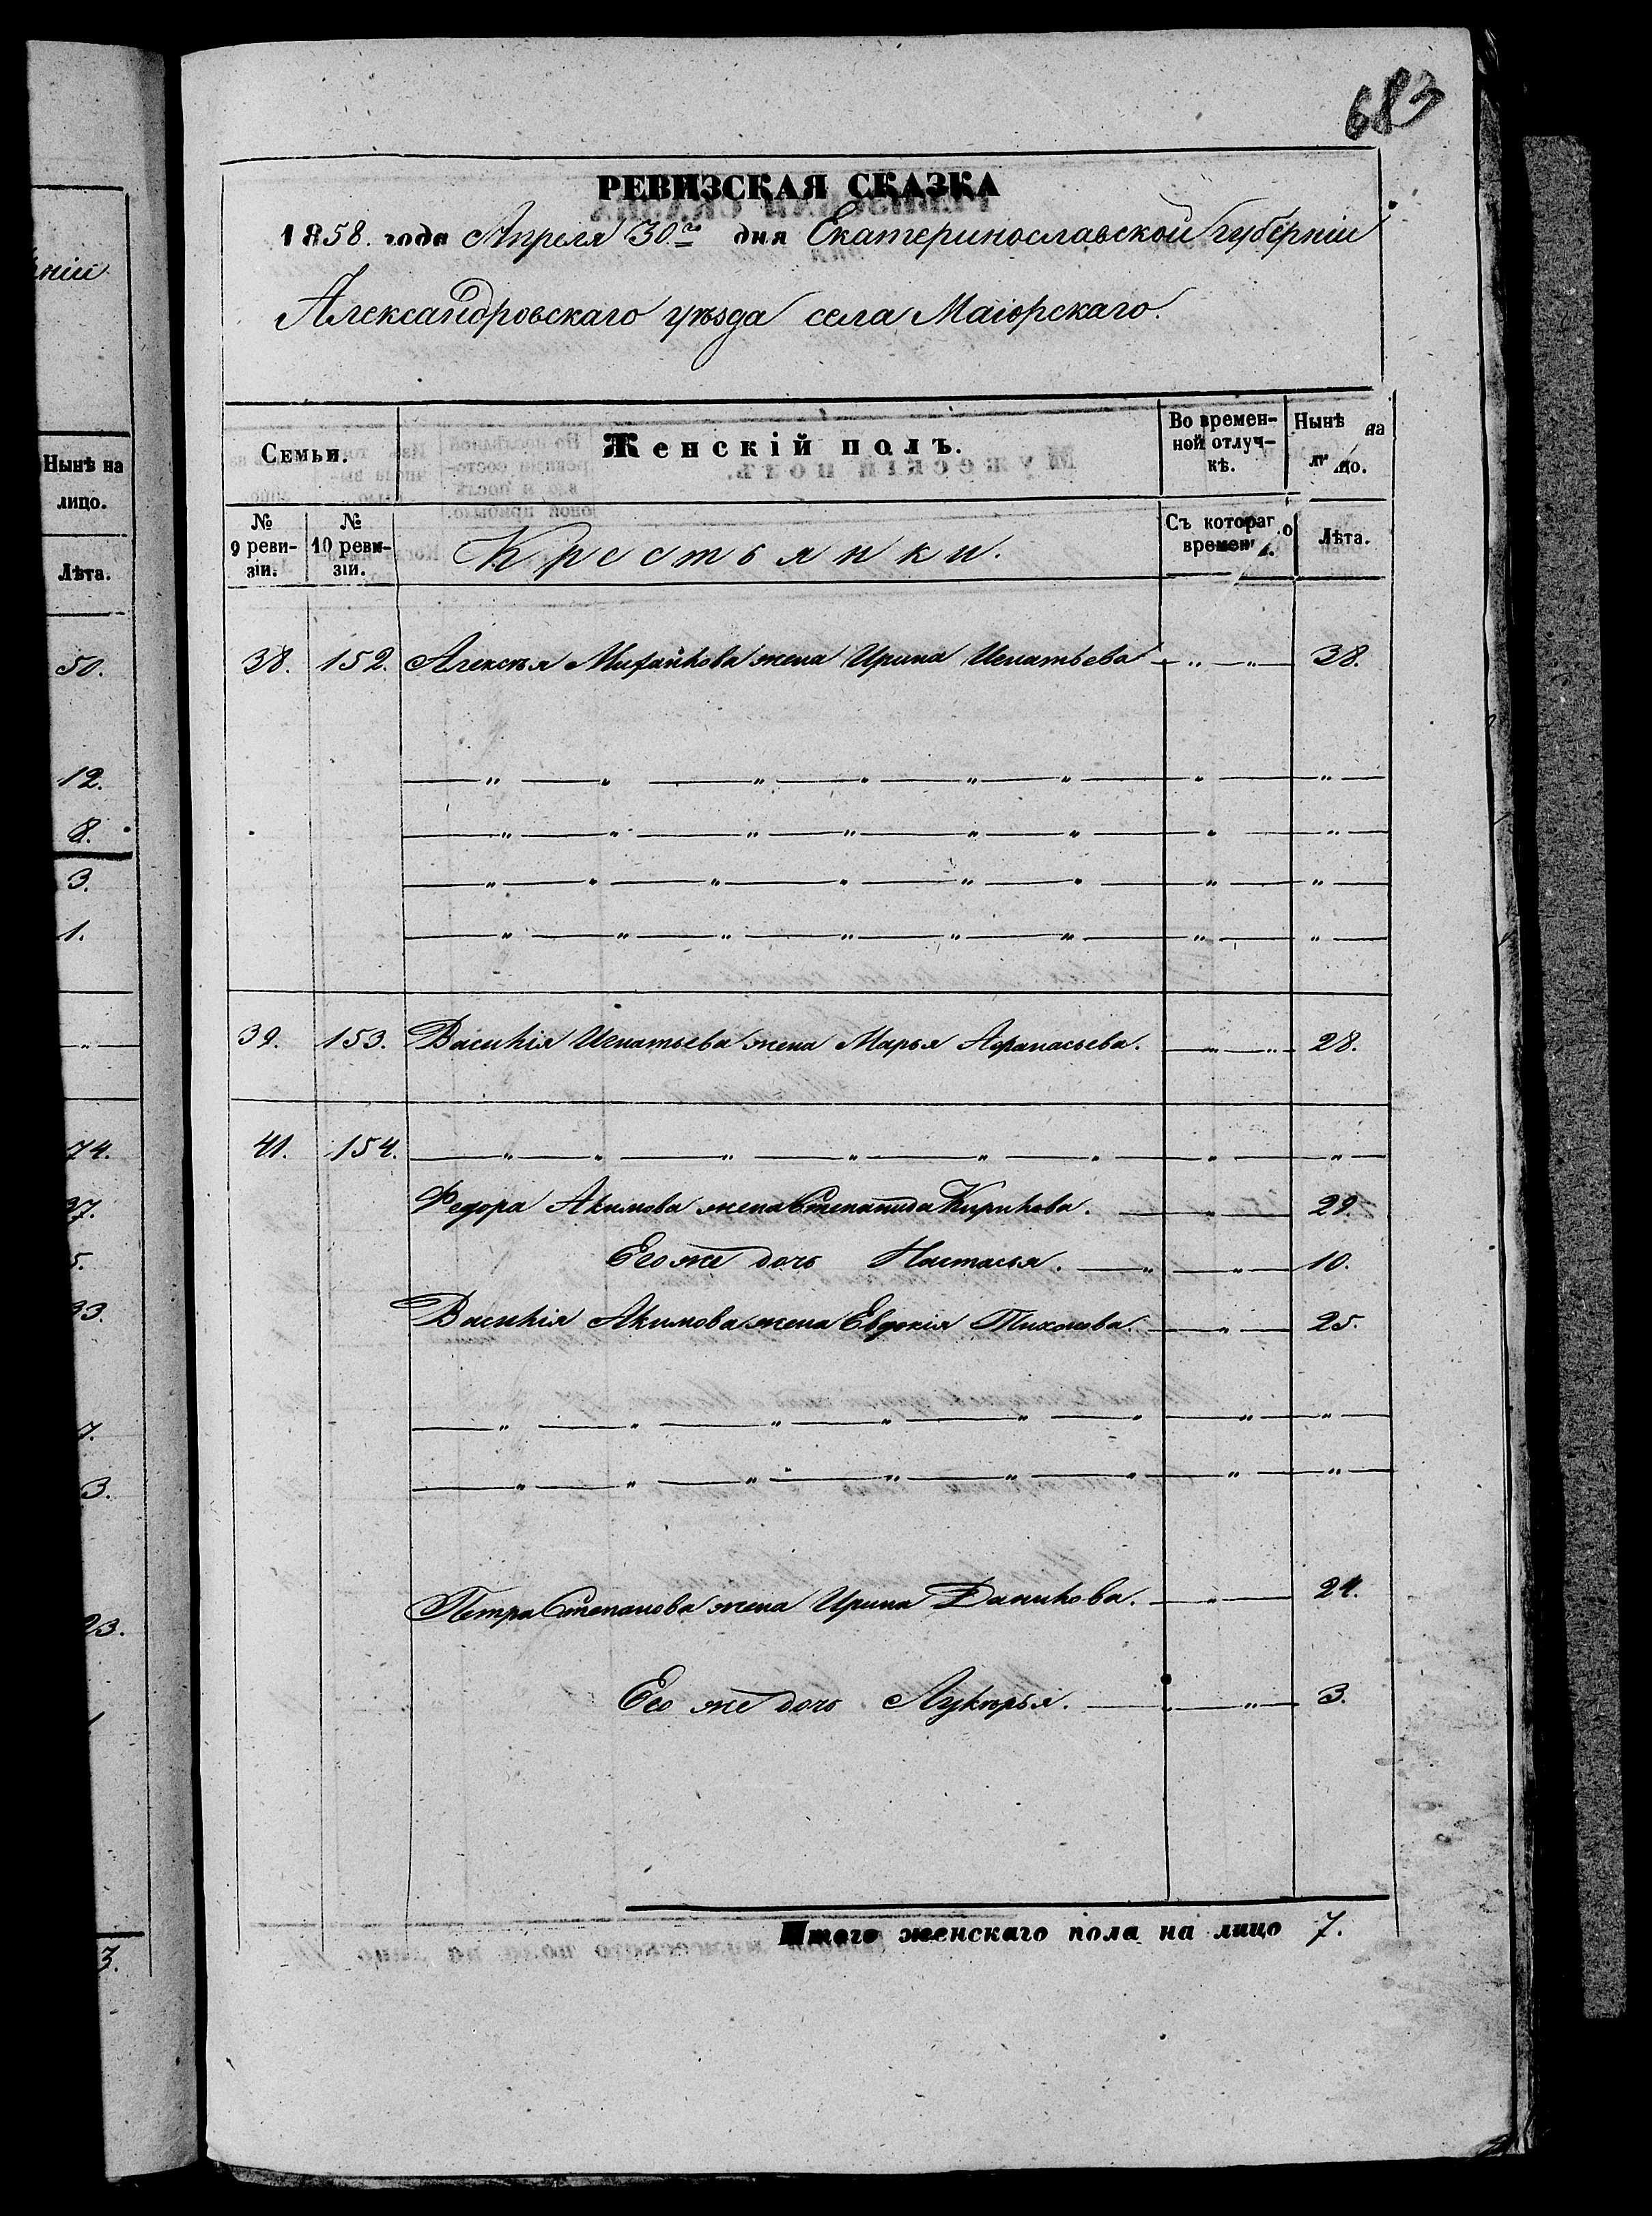 683
РЕВИЗСКАЯ СКАЗКА
1858. года Апреля 30го дня Екатеринославской губерніи
Александровскаго уѣзда села Маіорскаго.
нiи
Нынѣ на
лицо.
Лѣта.
50.
12.
8.
3.
1.
74.
37.
5.
33.
7.
3.
23.
3.
Семьи.
Женскій полъ.
Во времен-
ной отлуч-
кѣ.
Нынѣ на
лицо.
№
9 реви-
зіи.
№
10 реви-
зіи.
Крестьянки.
Съ котораго
времени.
Лѣта.
38. 152. Алексѣя Михайлова жена Ирина Игнатьева — „ — „ — 38.
— „ — „ — „ — „ — „ — „ — „ — „ —
— „ — „ — „ — „ — „ — „ — „ — „ —
— „ — „ — „ — „ — „ — „ — „ — „ —
— „ — „ — „ — „ — „ — „ — „ — „ —
39. 153. Василія Игнатьева жена Марья Афанасьева. — „ — „ — 28.
41. 154. — „ — „ — „ — „ — „ — „ — „ — „ —
Федора Акимова жена Степанида Кирилова. — „ — 29.
Его же дочь Настасья. — „ — „ — 10.
Василія Акимова жена Евдокія Тихонова. — „ — 25.
— „ — „ — „ — „ — „ — „ — „ — „ —
— „ — „ — „ — „ — „ — „ — „ — „ —
Петра Степанова жена Ирина Данилова. — „ — 24.
Его же дочь Лукѣрья. — „ — „ — 3.
Итого женскаго пола на лицо 7.